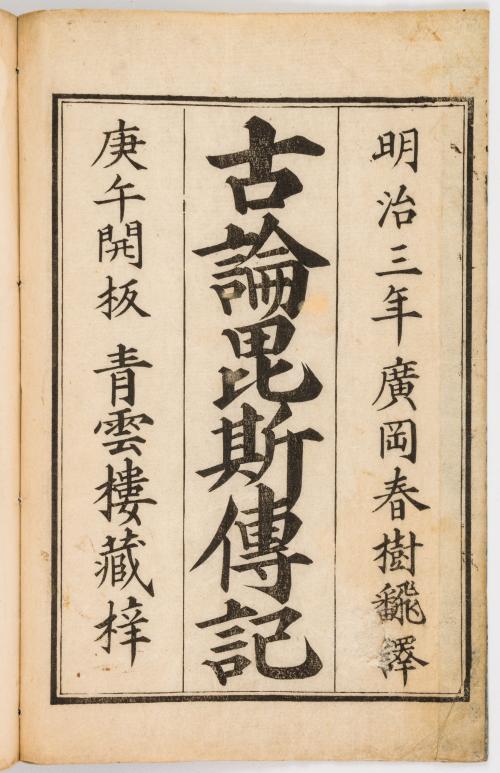 明治三年 廣岡春樹飜繹
古論毘斯傳記
庚午開板 青雲樓藏梓